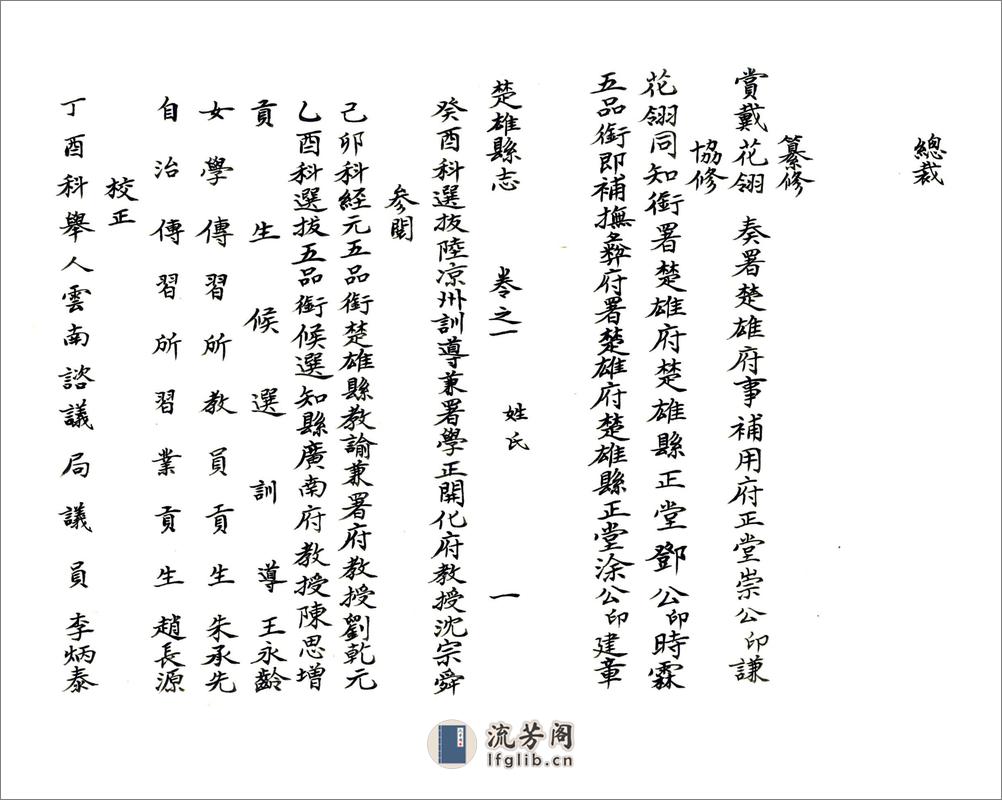 總裁
纂修
賞戴花翎 奏署楚雄府事補用府正堂崇公印謙
協修
花翎同知銜署楚雄府楚雄縣正堂鄧公印時霖
五品銜即補撫彝府署楚雄府楚雄縣正堂涂公印建章
楚雄縣志 卷之一 姓氏 一
癸酉科選拔陸凉州訓導兼署學正開化府教授沈宗舜
參閱
己卯科経元五品銜楚雄縣教諭兼署府教授劉乾元
乙酉科選拔五品銜候選知縣廣南府教授陳思增
貢生候選訓導王永齡
女學傳習所教員貢生朱承先
自治傳習所習業貢生趙長源
校正
丁酉科舉人雲南諮議局議員李炳泰
流芳阁
lfglib.cn